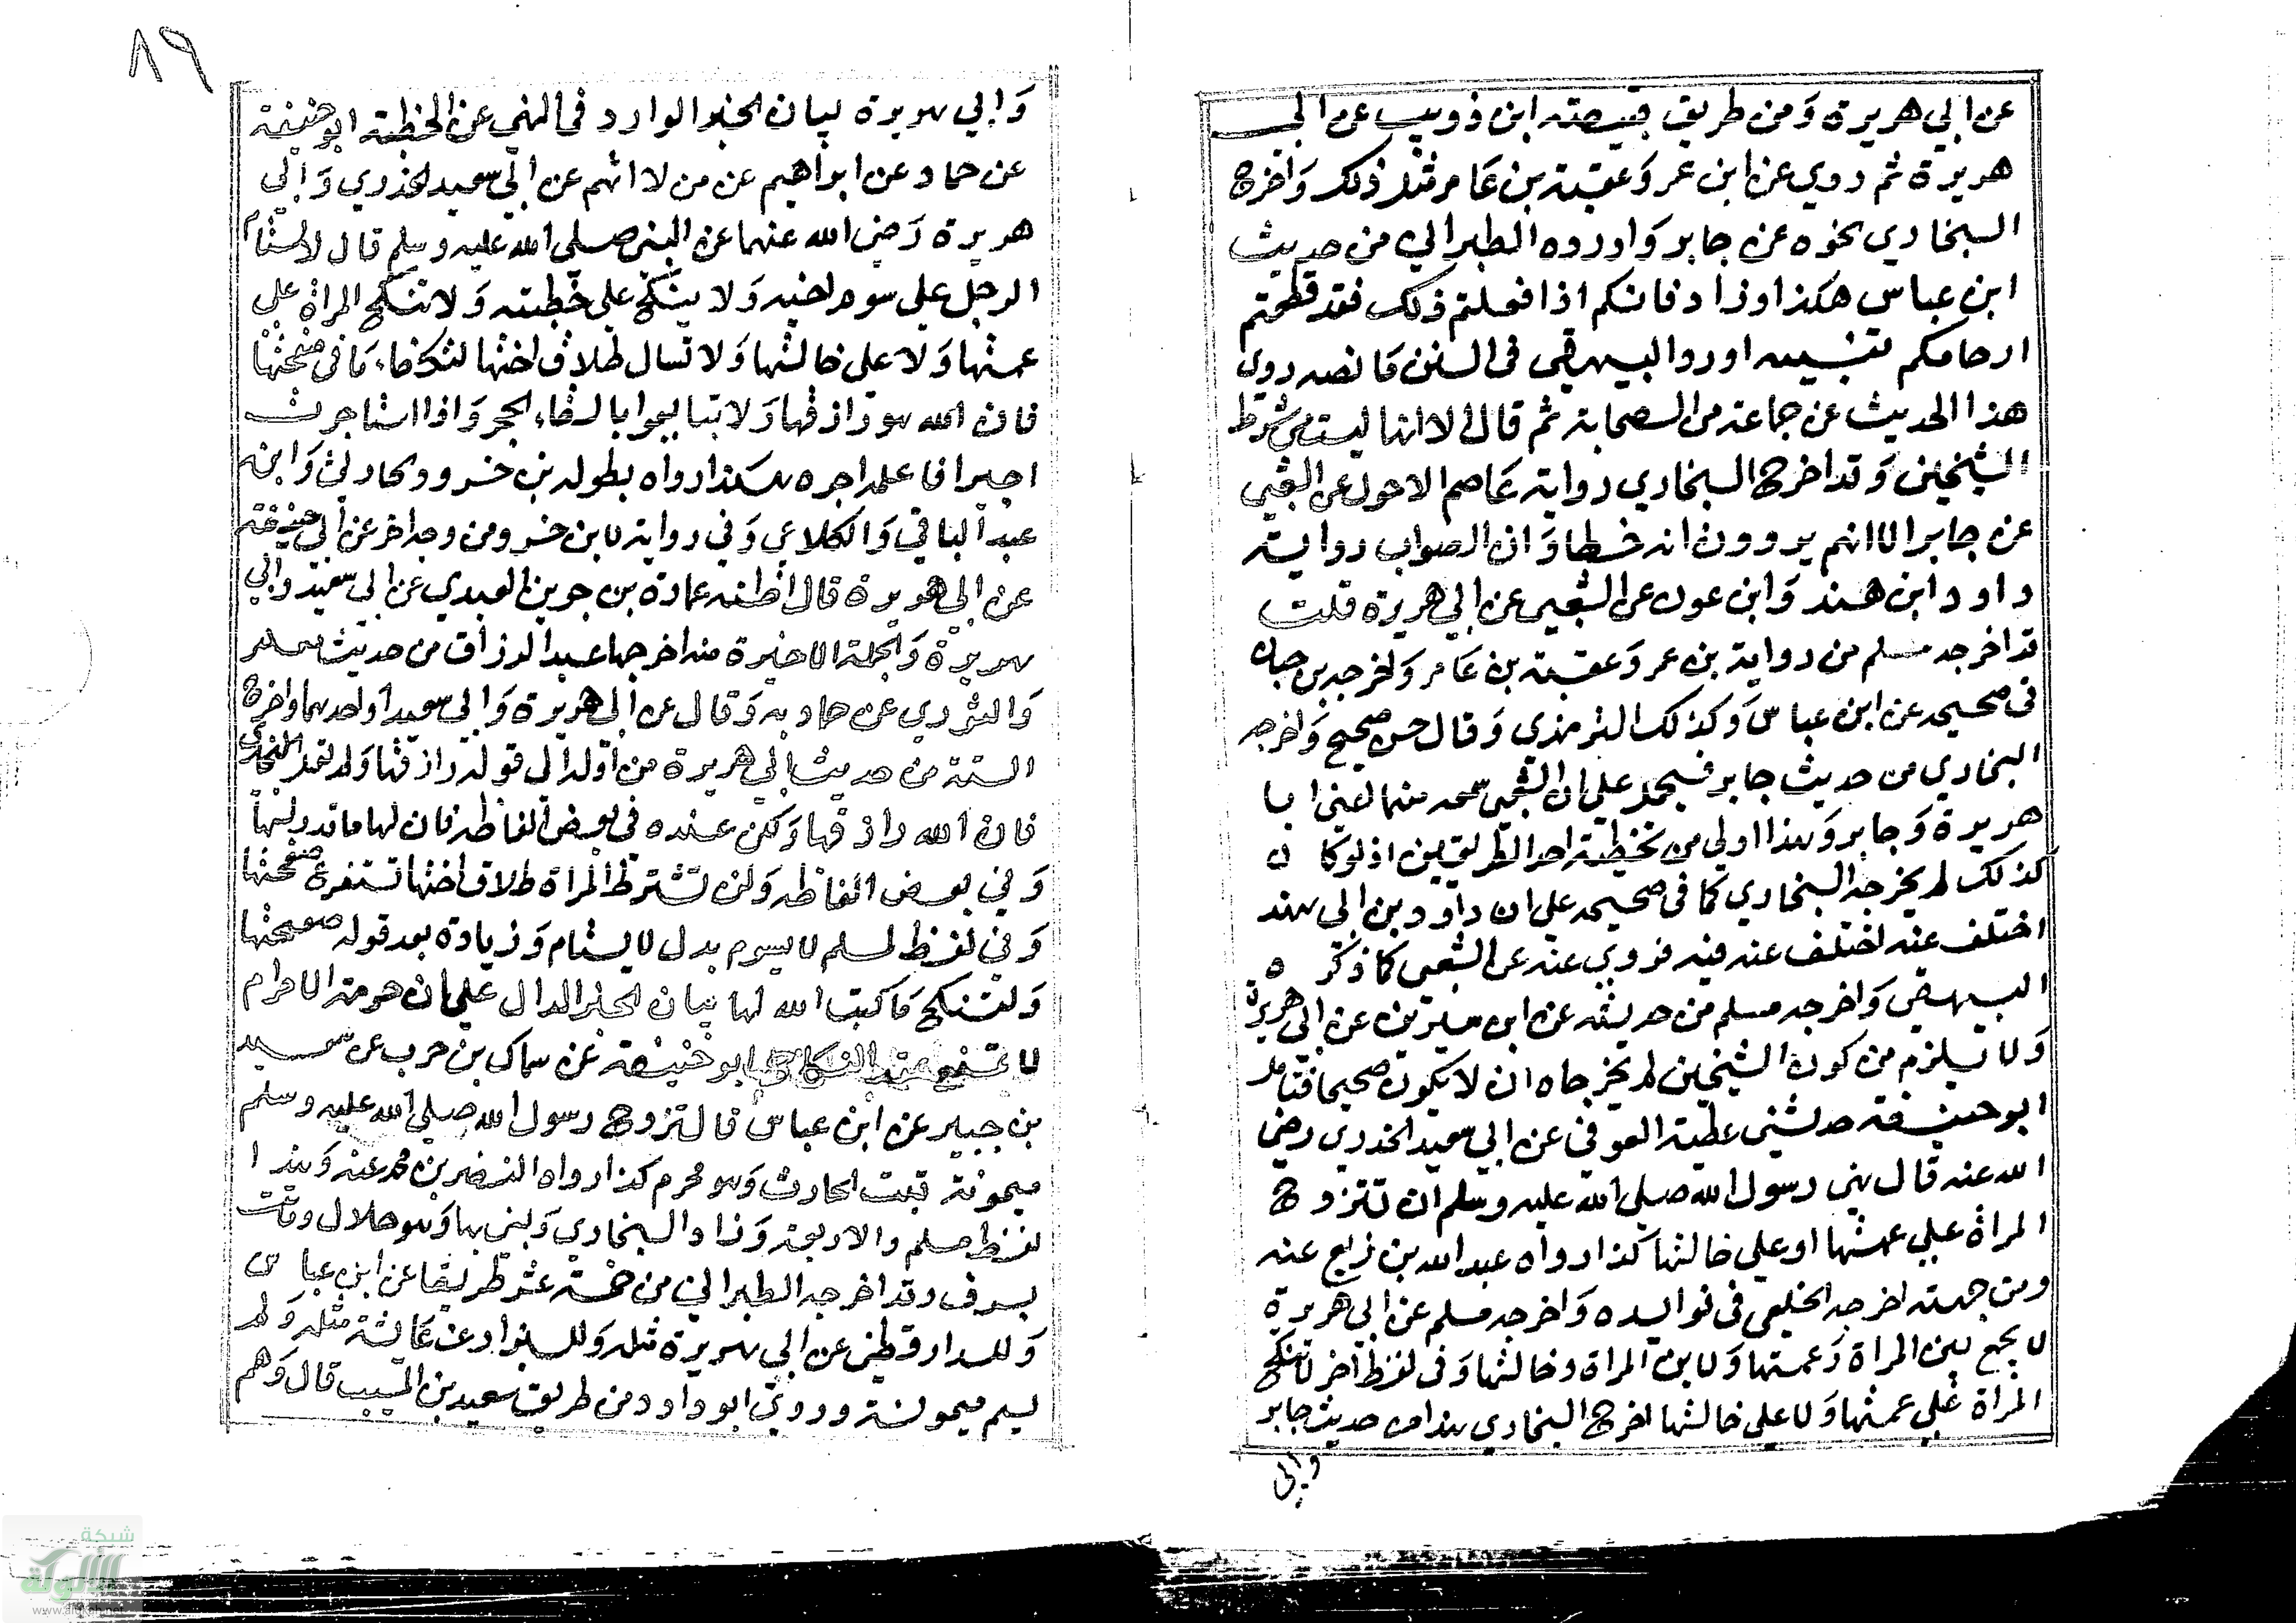 عن ابي هريرة وَمن طريق قبيصته ابن ذوويب عن ابي
هريرة ثم روي عن ابن عمر وَعقبة بن عَامر مثل ذلك وَاخرج
البخاري نحوه عن جابر وَاورده الطبراني من حديث
ابن عباس هكذا وزاد فانكم اذا فعلتم ذلك فقد قطعتم
ارحامكم تنبيه اورد البيهقي في السنن مَا نصه روي
هذا الحديث عن جماعة من الصحابة ثم قال الا انها ليست من شرط
الشيخين وَقد اخرج البخاري رواية عَاصم الاحول عن الشعبي
عن جابر الا انهم يروون انه خطا وَان الصواب رواية
داود ابن هند وَابن عون عن الشعبي عن ابي هريرة قلت
قد اخرجه مسلم من رواية بن عمر وَعقبة بن عَامر وَاخرجه بن حبان
في صحيحه عن ابن عباس وَكذلك الترمذي وَقال حسن صحيح وَاخرجه
البخاري من حديث جابر فيحمل علي ان الشعبي سمعه منهما لعني ابا
هريرة وَجابر وَهذا اولي من تخطية احد الطريقين اذ لو كان
كذلك لم يخرجه البخاري كما في صحيحه علي ان داود بن ابي هند
اختلف عنه اختلف عنه فيه فروي عنه عن الشعبي كما ذكره
البيهقي وَاخرجه مسلم من حديثه عن ابن سيرين عن ابي هريرة
وَلا يلزم من كون الشيخين لم يخرجاه ان لا يكون صحيحا فتامل
ابو حنيفة حدثني عطية العوفي عن ابي سعيد الخدري رضي
الله عنه قال نهي رسول الله صلي الله عليه وسلم ان تتزوج
المراة علي عمتها او علي خالتها كذا رواه عبد الله بن بزيع عنه
ومن جهته اخرجه الخلعي في فوايده وَاخرجه مسلم عن ابي هريرة
لا يجمع بين المراة وَعمتها وَلا بين المراة وخالتها وَفي لفظ اخر لا تنكح
المراة علي عمتها وَلا علي خالتها اخرج البخاري هذا من حديث جابر
وابي
٨٩
وَابي هريرة بيان الخبر الوارد في النهي عن الخطبة ابو حنيفة
عن حماد عن ابراهيم عن من لا اتهم عن ابي سعيد الخدري وَابي
هريرة رَضي الله عنهما عن النبي صلي الله عليه وسلم قال لا يستام
الرجل علي سوم اخيه وَلا ينكح علي خطبته وَلا تنكح المراة علي
عمتها وَلا علي خالتها وَلا تسال طلاق اختها لتكفاء مَا في صحفتها
فان الله هو رازقها وَلا تبايعوا بالقاء الحجر وَاذا استاجرت
اجيرا فاعلمه اجره هكذا رواه بطوله بن خسرو والحارثي وَابن
عبد الباقي وَالكلاعي وَفي رواية لابن خسرو من وجه اخر عن ابي حنيفة
عن ابي هريرة قال اظنه عمارة بن جوين العبدي عن ابي سعيد وابي
هريرة وَالجملة الاخيرة منه اخرجها عبد الرزاق من حديث معمر
وَالثوري عن حماد به وَقال عن ابي هريرة وَابي سعيد او احدهما واخرج
الستة من حديث ابي هريرة من اوله الي قوله رازقها وَلم يقل البخاري
فان الله رازقها وَلكن عنده في بعض الفاظه فان لها ما قدر لها
وَفي بعض الفاظه وَلن تشترط المراة طلاق اختها تستفرغ صحفتها
وَفي لفظ لمسلم لا يسوم بدل لا يستام وَزيادة بعد قوله صحفتها
وَلتنكح مَا كتب الله لها بيان الخبر الدال علي ان حرمة الاحرام
لا تمنع عقد النكاح ابو حنيفة عن سماك بن حرب عن سعيد
بن جبير عن ابن عباس قال تزوج رسول الله صلي الله عليه وسلم
ميمونة بنت الحارث وَهو محرم كذا رواه النضر بن محمد عنه وَهذا
لفظ مسلم والاربعة وَزاد البخاري وَبني بها وَهو حلال وماتت
بسرف وقد اخرجه الطبراني من خمسة عشر طريقا عن ابن عباس
وَللدارقطني عن ابي هريرة مثله وَللبزار عن عَايشة مثله وَلم
يسم ميمونة وروي ابو داود من طريق سعيد بن المسيب قال وَهم
شبكة
الألوكة
www.alukah.net